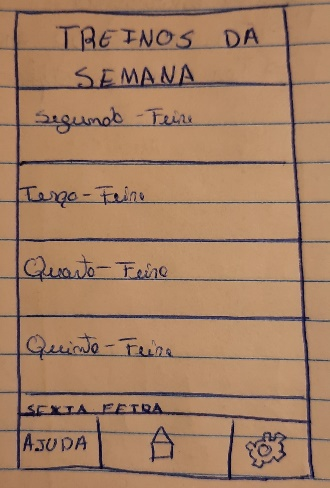 TREINOS DA
SEMANA
Segunda-Feira
Terça-Feira
Quarta-Feira
Quinta-Feira
SEXTA FEIRA
AJUDA